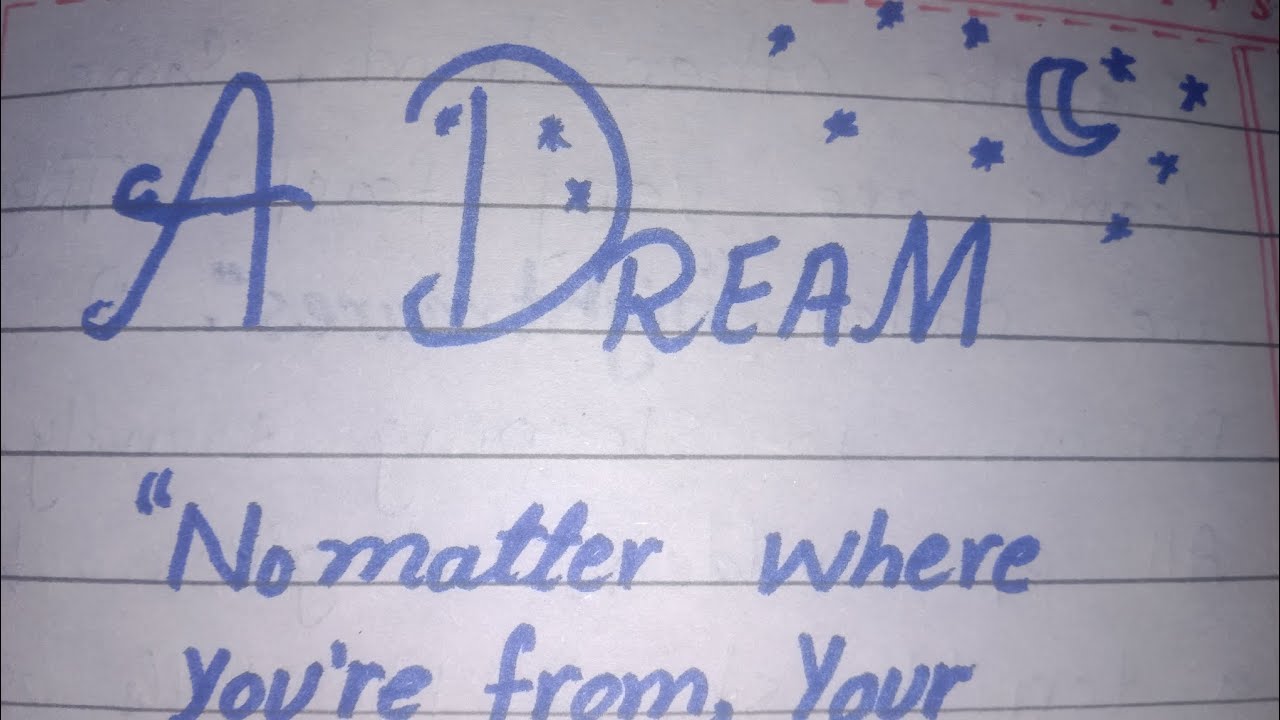 A DREAM
“No matter where
you're from, Your